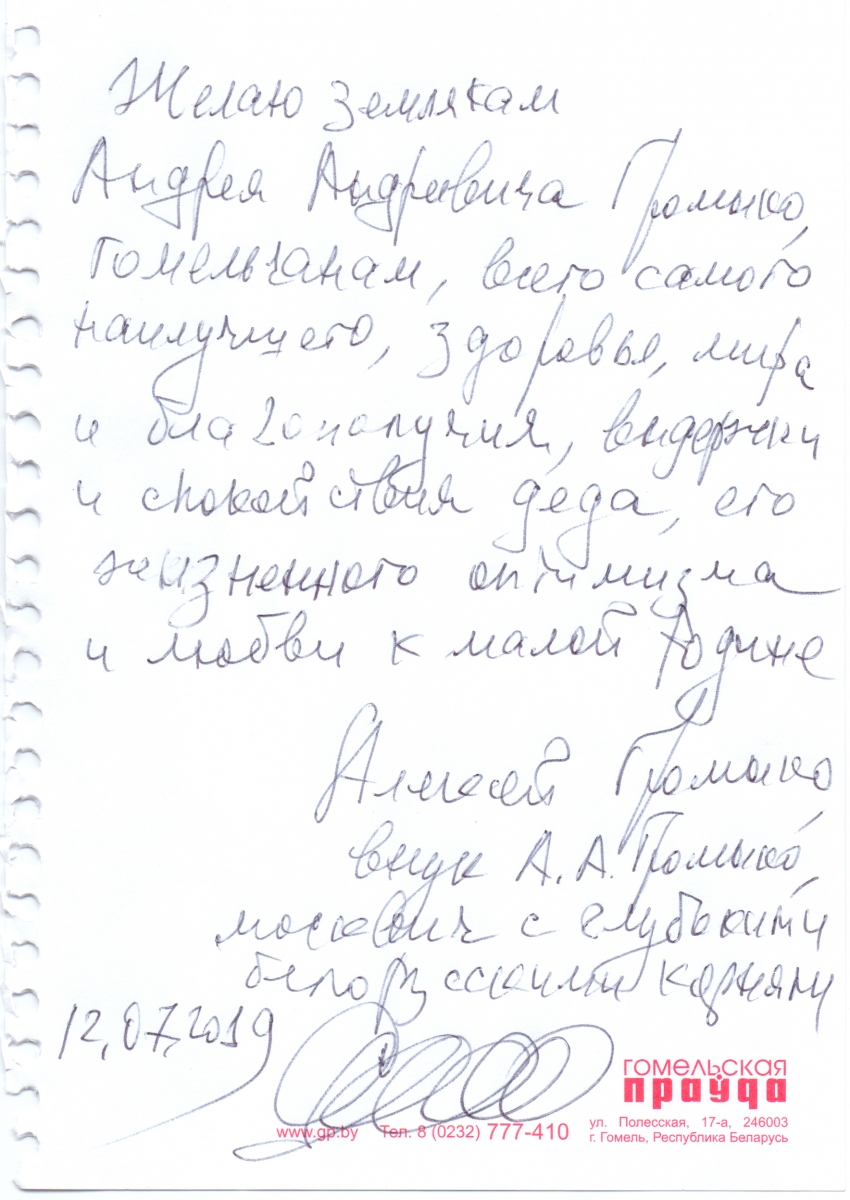 Желаю землякам
Андрея Андреевича Громыко,
гомельчанам, всего самого
наилучшего, здоровья, мира
и благополучия, выдержки
и спокойствия деда, его
жизненного оптимизма
и любви к малой Родине
Алексей Громыко
внук А. А. Громыко,
москвич с глубокими
белорусскими корнями
12.07.2019
гомельская
праўда
www.gp.by Тел. 8 (0232) 777-410
ул. Полесская, 17-а, 246003
г. Гомель, Республика Беларусь